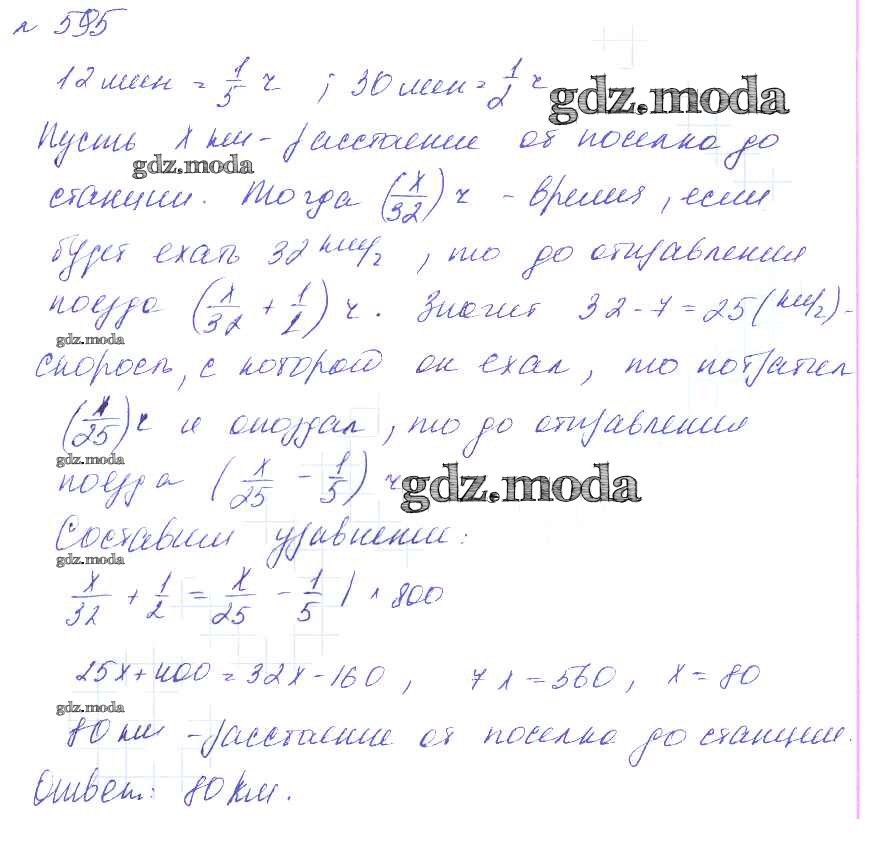 № 595
12 мин = 1/5 ч ; 30 мин = 1/2 ч
gdz.moda
Пусть x км - расстояние от поселка до
gdz.moda
станции. Тогда (x/32) ч - время, если
будет ехать 32 км/ч, то до отправления
поезда (x/32 + 1/2) ч. Значит 32 - 7 = 25 (км/ч) -
gdz.moda
скорость, с которой он ехал, то потратил
(x/25) ч и опоздал, то до отправления
gdz.moda
поезда (x/25 - 1/5) ч
gdz.moda
Составим уравнение:
gdz.moda
x/32 + 1/2 = x/25 - 1/5 | · 800
25x + 400 = 32x - 160, 7x = 560, x = 80
gdz.moda
80 км - расстояние от поселка до станции.
Ответ: 80 км.